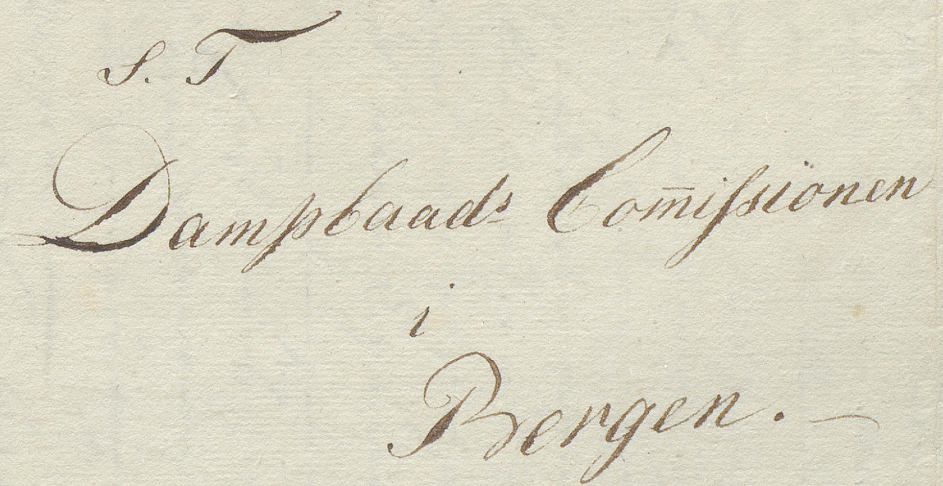 S. T
Dampbaads Com̅iſsionen
i
Bergen. —